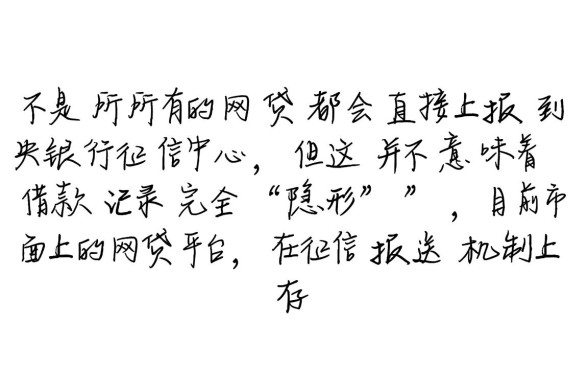 不是所所有的网贷都会直接上报到
央银行征信中心，但这并不意味着
借款记录完全“隐形””，目前市
面上的网贷平台，在征信报送机制上
存